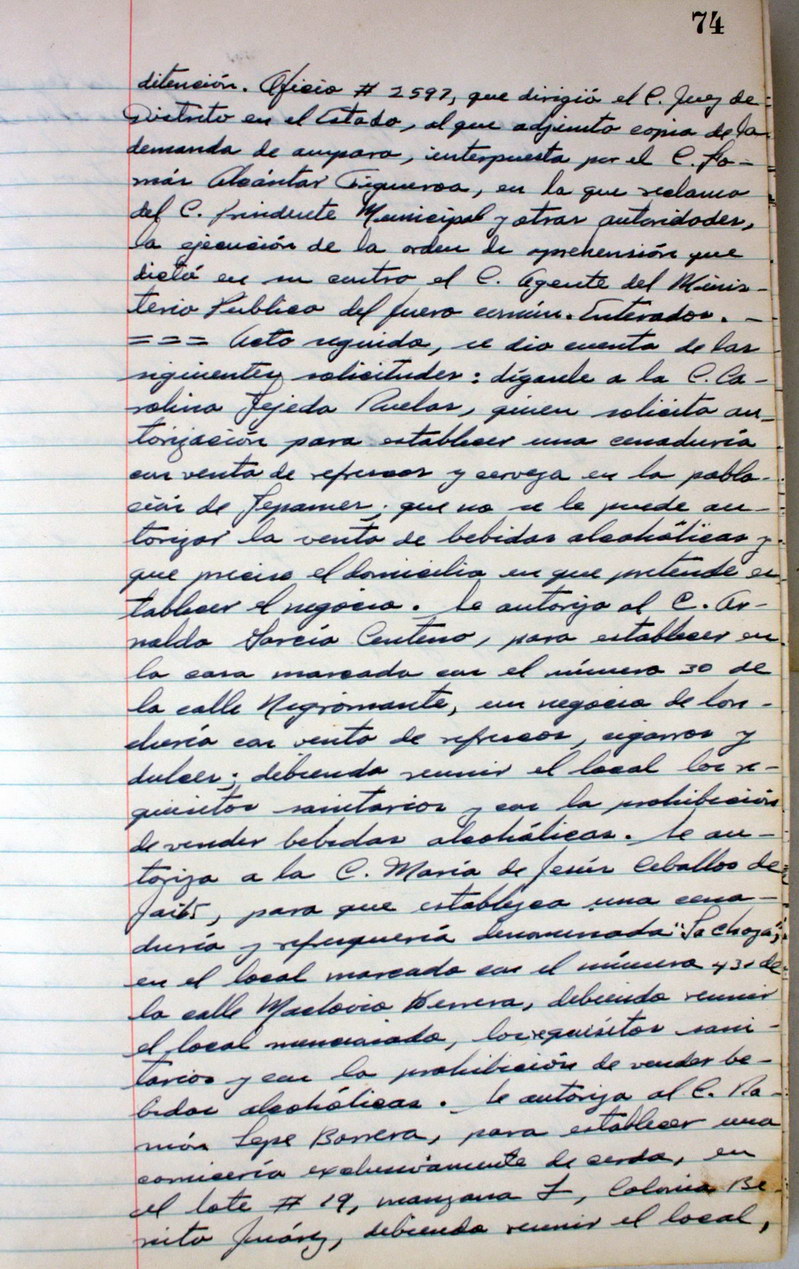 74
ditención. Oficio # 2597, que dirigió el C. Juez de
Distrito en el Estado, al que adjunta copia de la
demanda de amparo, interpuesta por el C.
Alcántar Figueroa, en la que reclama
del C. Presidente Municipal y otras autoridades,
la ejecución de la orden de aprehensión que
dictó en su contra el C. Agente del Minis-
terio Público del fuero común. Enterados. -
=== Acto seguido, se dio cuenta de las
siguientes solicitudes: dígasele a la C. Ca-
rolina Tejeda Ruelas, quien solicita au-
torización para establecer una cenaduría
con venta de refrescos y cerveza en la pobla-
ción de Tepames; que no se le puede au-
torizar la venta de bebidas alcohólicas y
que precise el domicilio en que pretende es-
tablecer el negocio. Se autoriza al C. Ar-
naldo García Centeno, para establecer en
la casa marcada con el número 30 de
la calle Nigromante, un negocio de lon-
chería con venta de refrescos, cigarros y
dulces; debiendo reunir el local los re-
quisitos sanitarios y con la prohibición
de vender bebidas alcohólicas. Se au-
toriza a la C. María de Jesús Ceballos de
para que establezca una cena-
duría y refresquería denominada "La Choza",
en el local marcado con el número de
la calle Maclovio Herrera, debiendo reunir
el local mencionado, los requisitos sani-
tarios y con la prohibición de vender be-
bidas alcohólicas. Se autoriza al C. Ra-
món Lepe Barrera, para establecer una
carnicería exclusivamente de cerdo, en
el lote # 19, manzana I, Colonia Be-
nito Juárez, debiendo reunir el local,